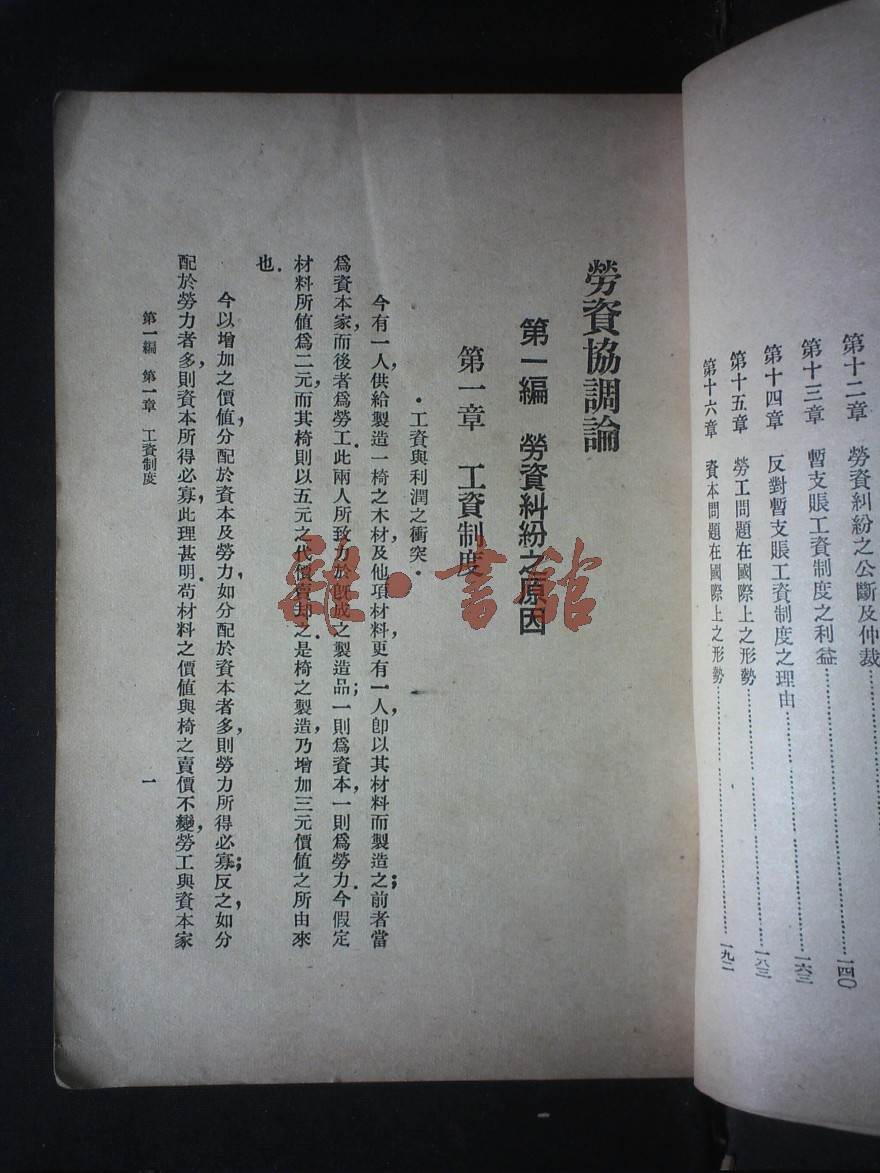 第十二章　勞資糾紛之公斷及仲裁……一四〇
第十三章　暫支賬工資制度之利益……一六三
第十四章　反對暫支賬工資制度之理由……
第十五章　勞工問題在國際上之形勢……一八三
第十六章　資本問題在國際上之形勢……一九二
勞資協調論
第一編　勞資糾紛之原因
第一章　工資制度
・工資與利潤之衝突・
今有一人，供給製造一椅之木材及他項材料，更有一人，卽以其材料而製造之；前者當
爲資本家，而後者爲勞工。此兩人所致力於旣成之製造品；一則爲資本，一則爲勞力。今假定
材料所值爲二元，而其椅則以五元之代價賣却之。是椅之製造，乃增加三元價値之所由來
也。
今以增加之價値，分配於資本及勞力，如分配於資本者多，則勞力所得必寡；反之，如分
配於勞力者多，則資本所得必寡，此理甚明。苟材料之價値與椅之賣價不變，勞工與資本家
第一編　第一章　工資制度
一
雜・書館